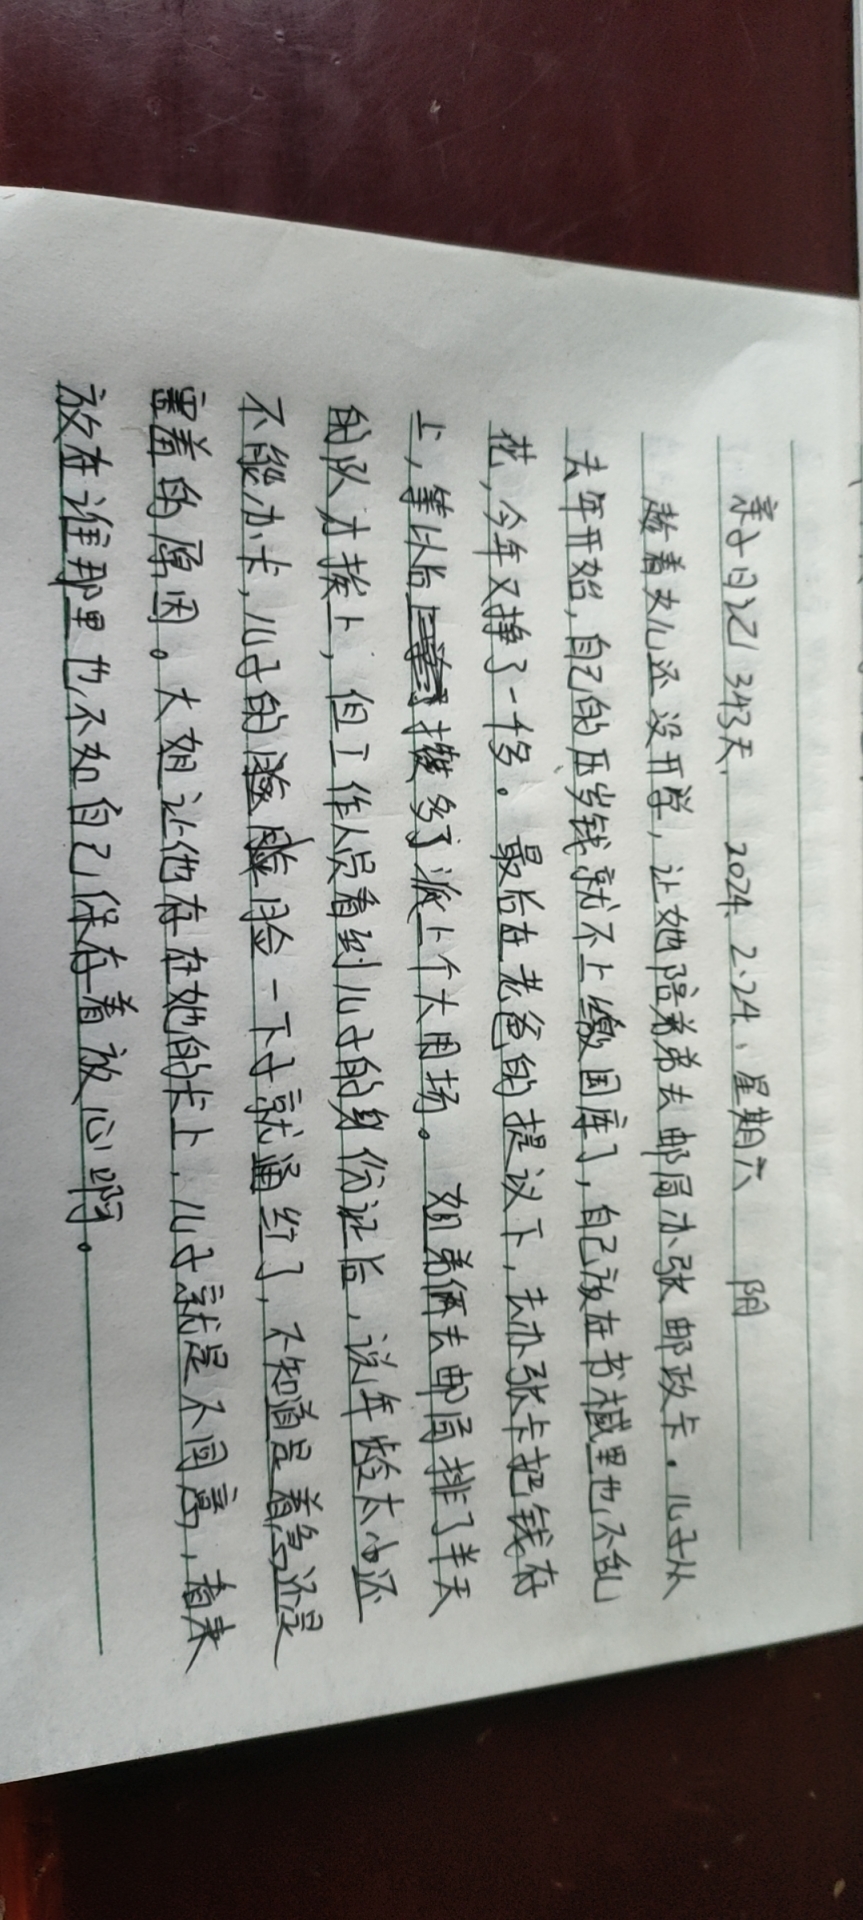 亲子日记343天、 2024、2.24、星期六 阴
趁着女儿还没开学，让她陪弟弟去邮局办张邮政卡。儿子从
去年开始，自己的压岁钱就不上缴国库了，自己放在书橱里也不乱
花，今年又挣了一千多。最后在老爸的提议下，去办张卡把钱存
上，等以后攒多了派上个大用场。姐弟俩去邮局排了半天
的队才挨上，但工作人员看到儿子的身份证后，说年龄太小还
不能办卡，儿子的脸一下子就通红了，不知道是着急还是
害羞的原因。大姐让他存在她的卡上，儿子就是不同意，看来
放在谁那里也不如自己保存着放心啊。